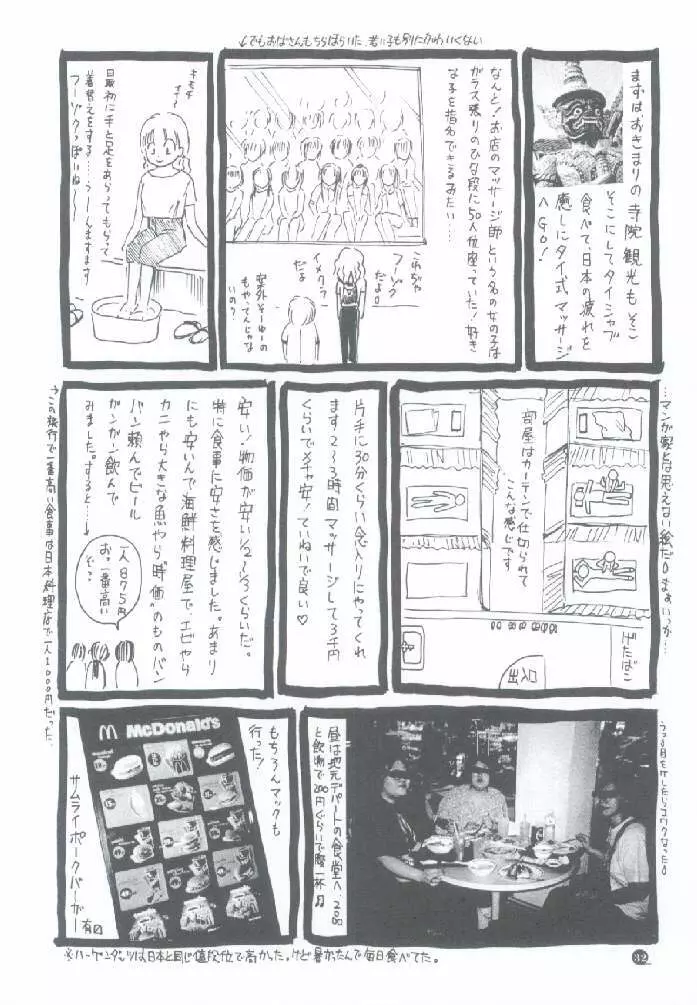 ↓でもおばさんもちらほらいた、若い子も別にかわいくない
まずはおきまりの寺院観光もそこ
そこにしてタイシャブ
食べて、日本の疲れを
癒しにタイ式マッサージ
へGO!
なんと!お店のマッサージ師という名の女の子は
ガラス張りのひな段に50人位座っていた!好き
な子を指名できるみたい…
これじゃ
フーゾク
だよ。
イメクラ
だよ
案外そーゆーの
もやってんじゃな
いの?
キモチ
イイ〜
最初に手と足をあらってもらって
着替えをする…うーんますます
フーゾクっぽいね〜〜
…マンガ家とは思えない絵だ。まあいっか…
部屋はカーテンで仕切られて
こんな感じです
げたばこ
出入口
片手に30分くらい念入りにやってくれ
ます2〜3時間マッサージして3千円
くらいでメチャ安!ていねいで良い♡
安い!物価が安い1/2〜1/3くらいだ。
特に食事に安さを感じました。あまり
にも安いんで海鮮料理屋で、エビやら
カニやら大きな魚やら"時価"のものバン
バン頼んでビール
ガンガン飲んで
みました。すると…→
一人875円
お。一番高い
ぞ?
→この旅行で一番高い食事は日本料理店で一人1000円だった。
昼は地元デパートの食堂へ200
と飲物で200円ぐらいで腹一杯♫
McDonald's
もちろんマックも
行った!
サムライポークバーガー
有り
※ハーゲンダッツは日本と同じ値段位で高かった。けど暑かったんで毎日食べてた。
32